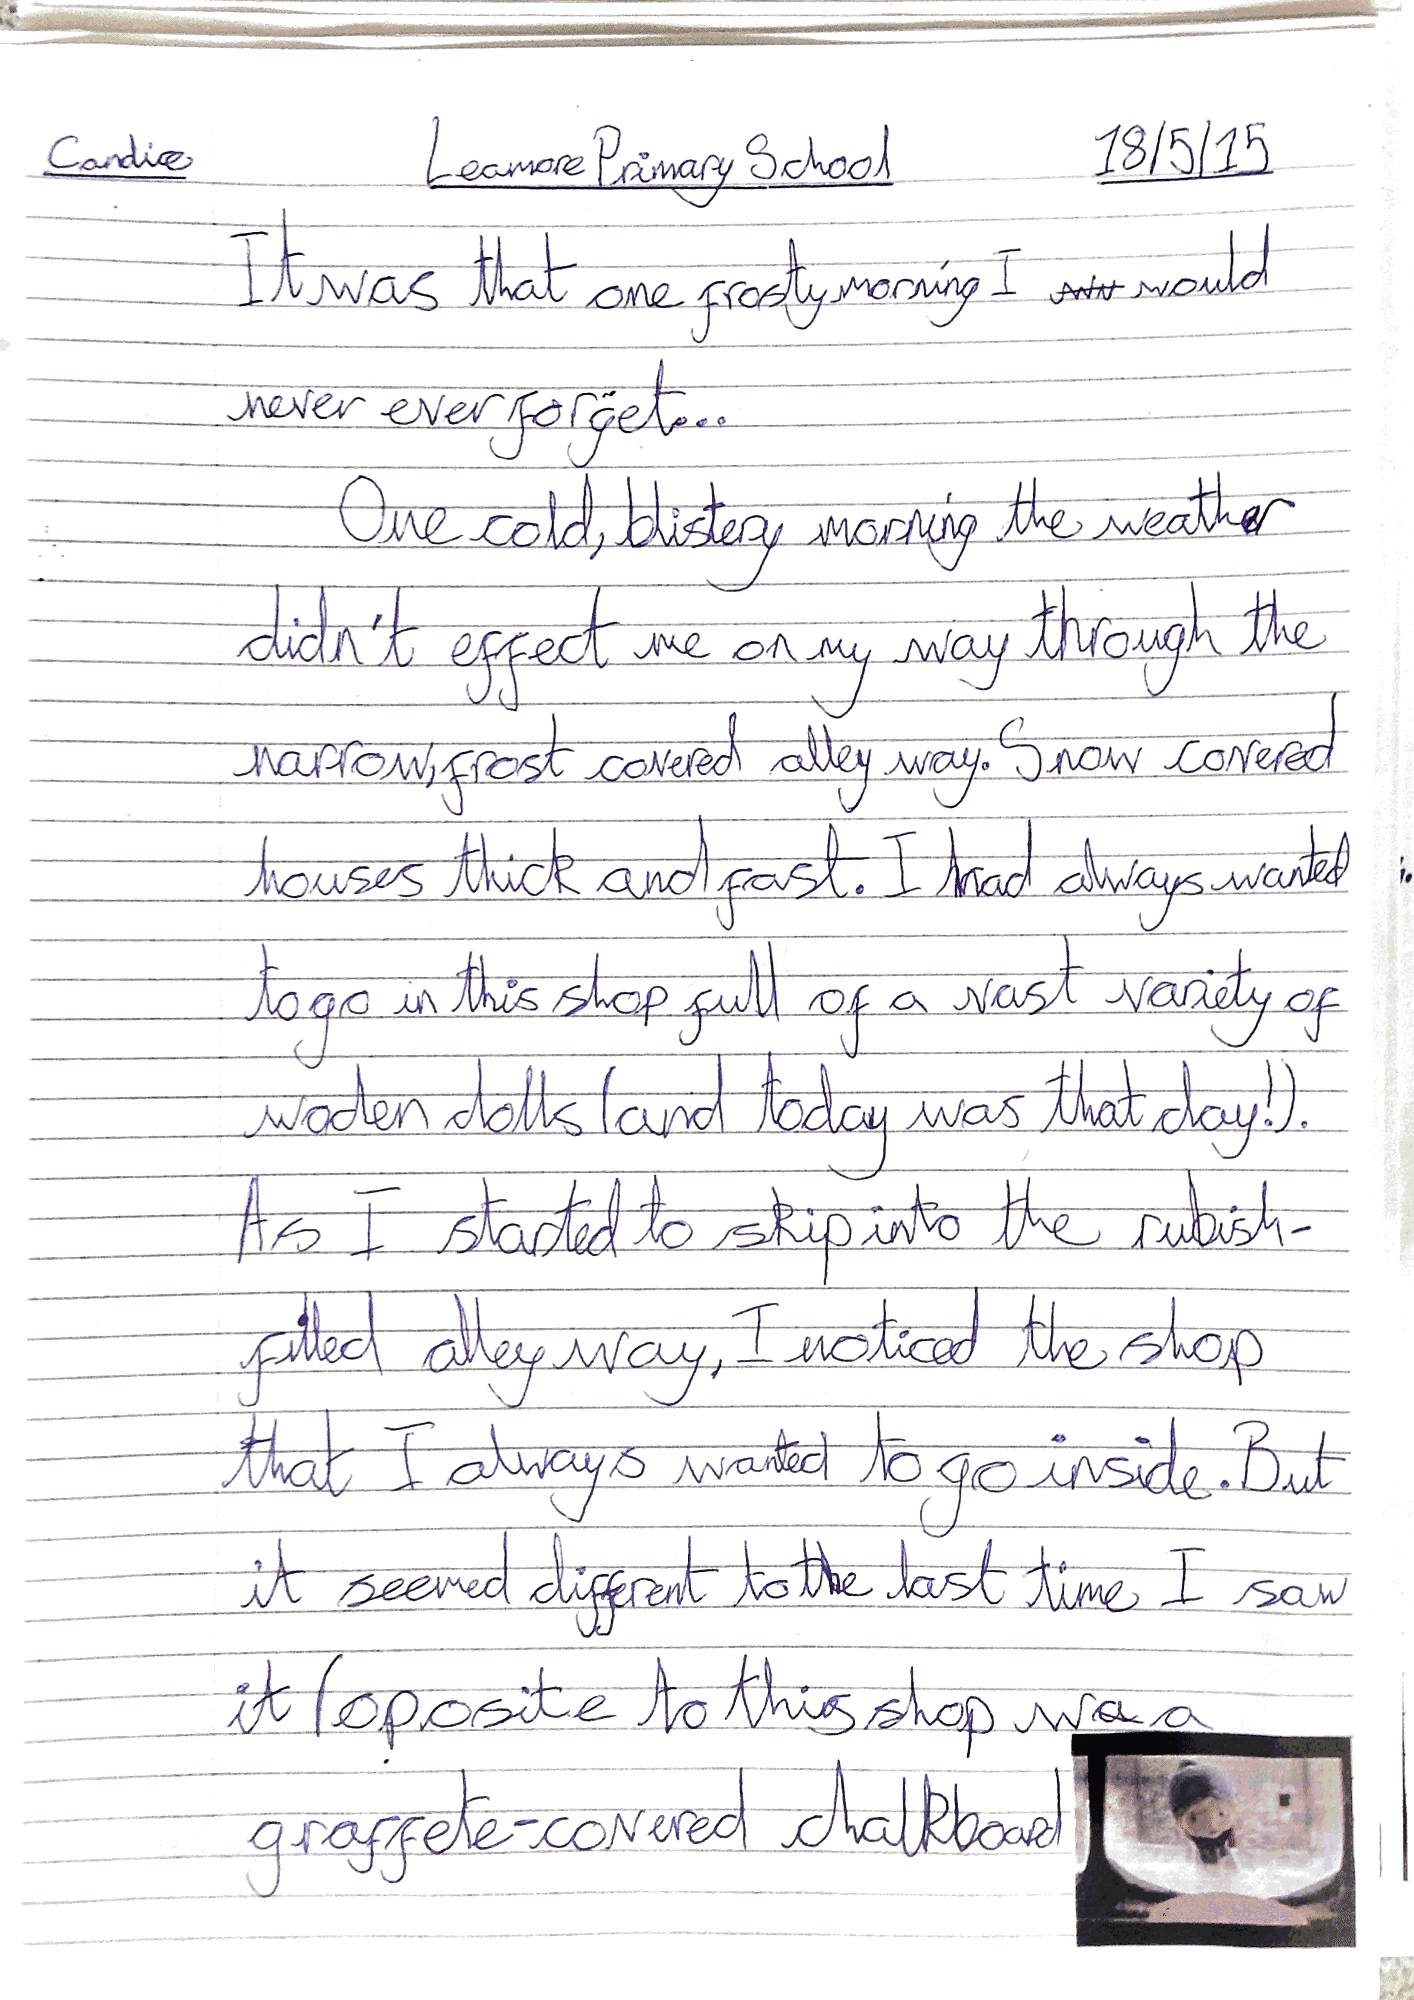 Candice Leamore Primary School 18/5/15
It was that one frosty morning I would
never ever forget...
One cold, blistery morning the weather
didn't effect me on my way through the
narrow, frost covered alley way. Snow covered
houses thick and fast. I had always wanted
to go in this shop full of a vast variety of
woden dolls (and today was that day!).
As I started to skip into the rubish-
filled alley way, I noticed the shop
that I always wanted to go inside. But
it seemed different to the last time I saw
it (oposite to this shop was a
graffete-covered chalkboard